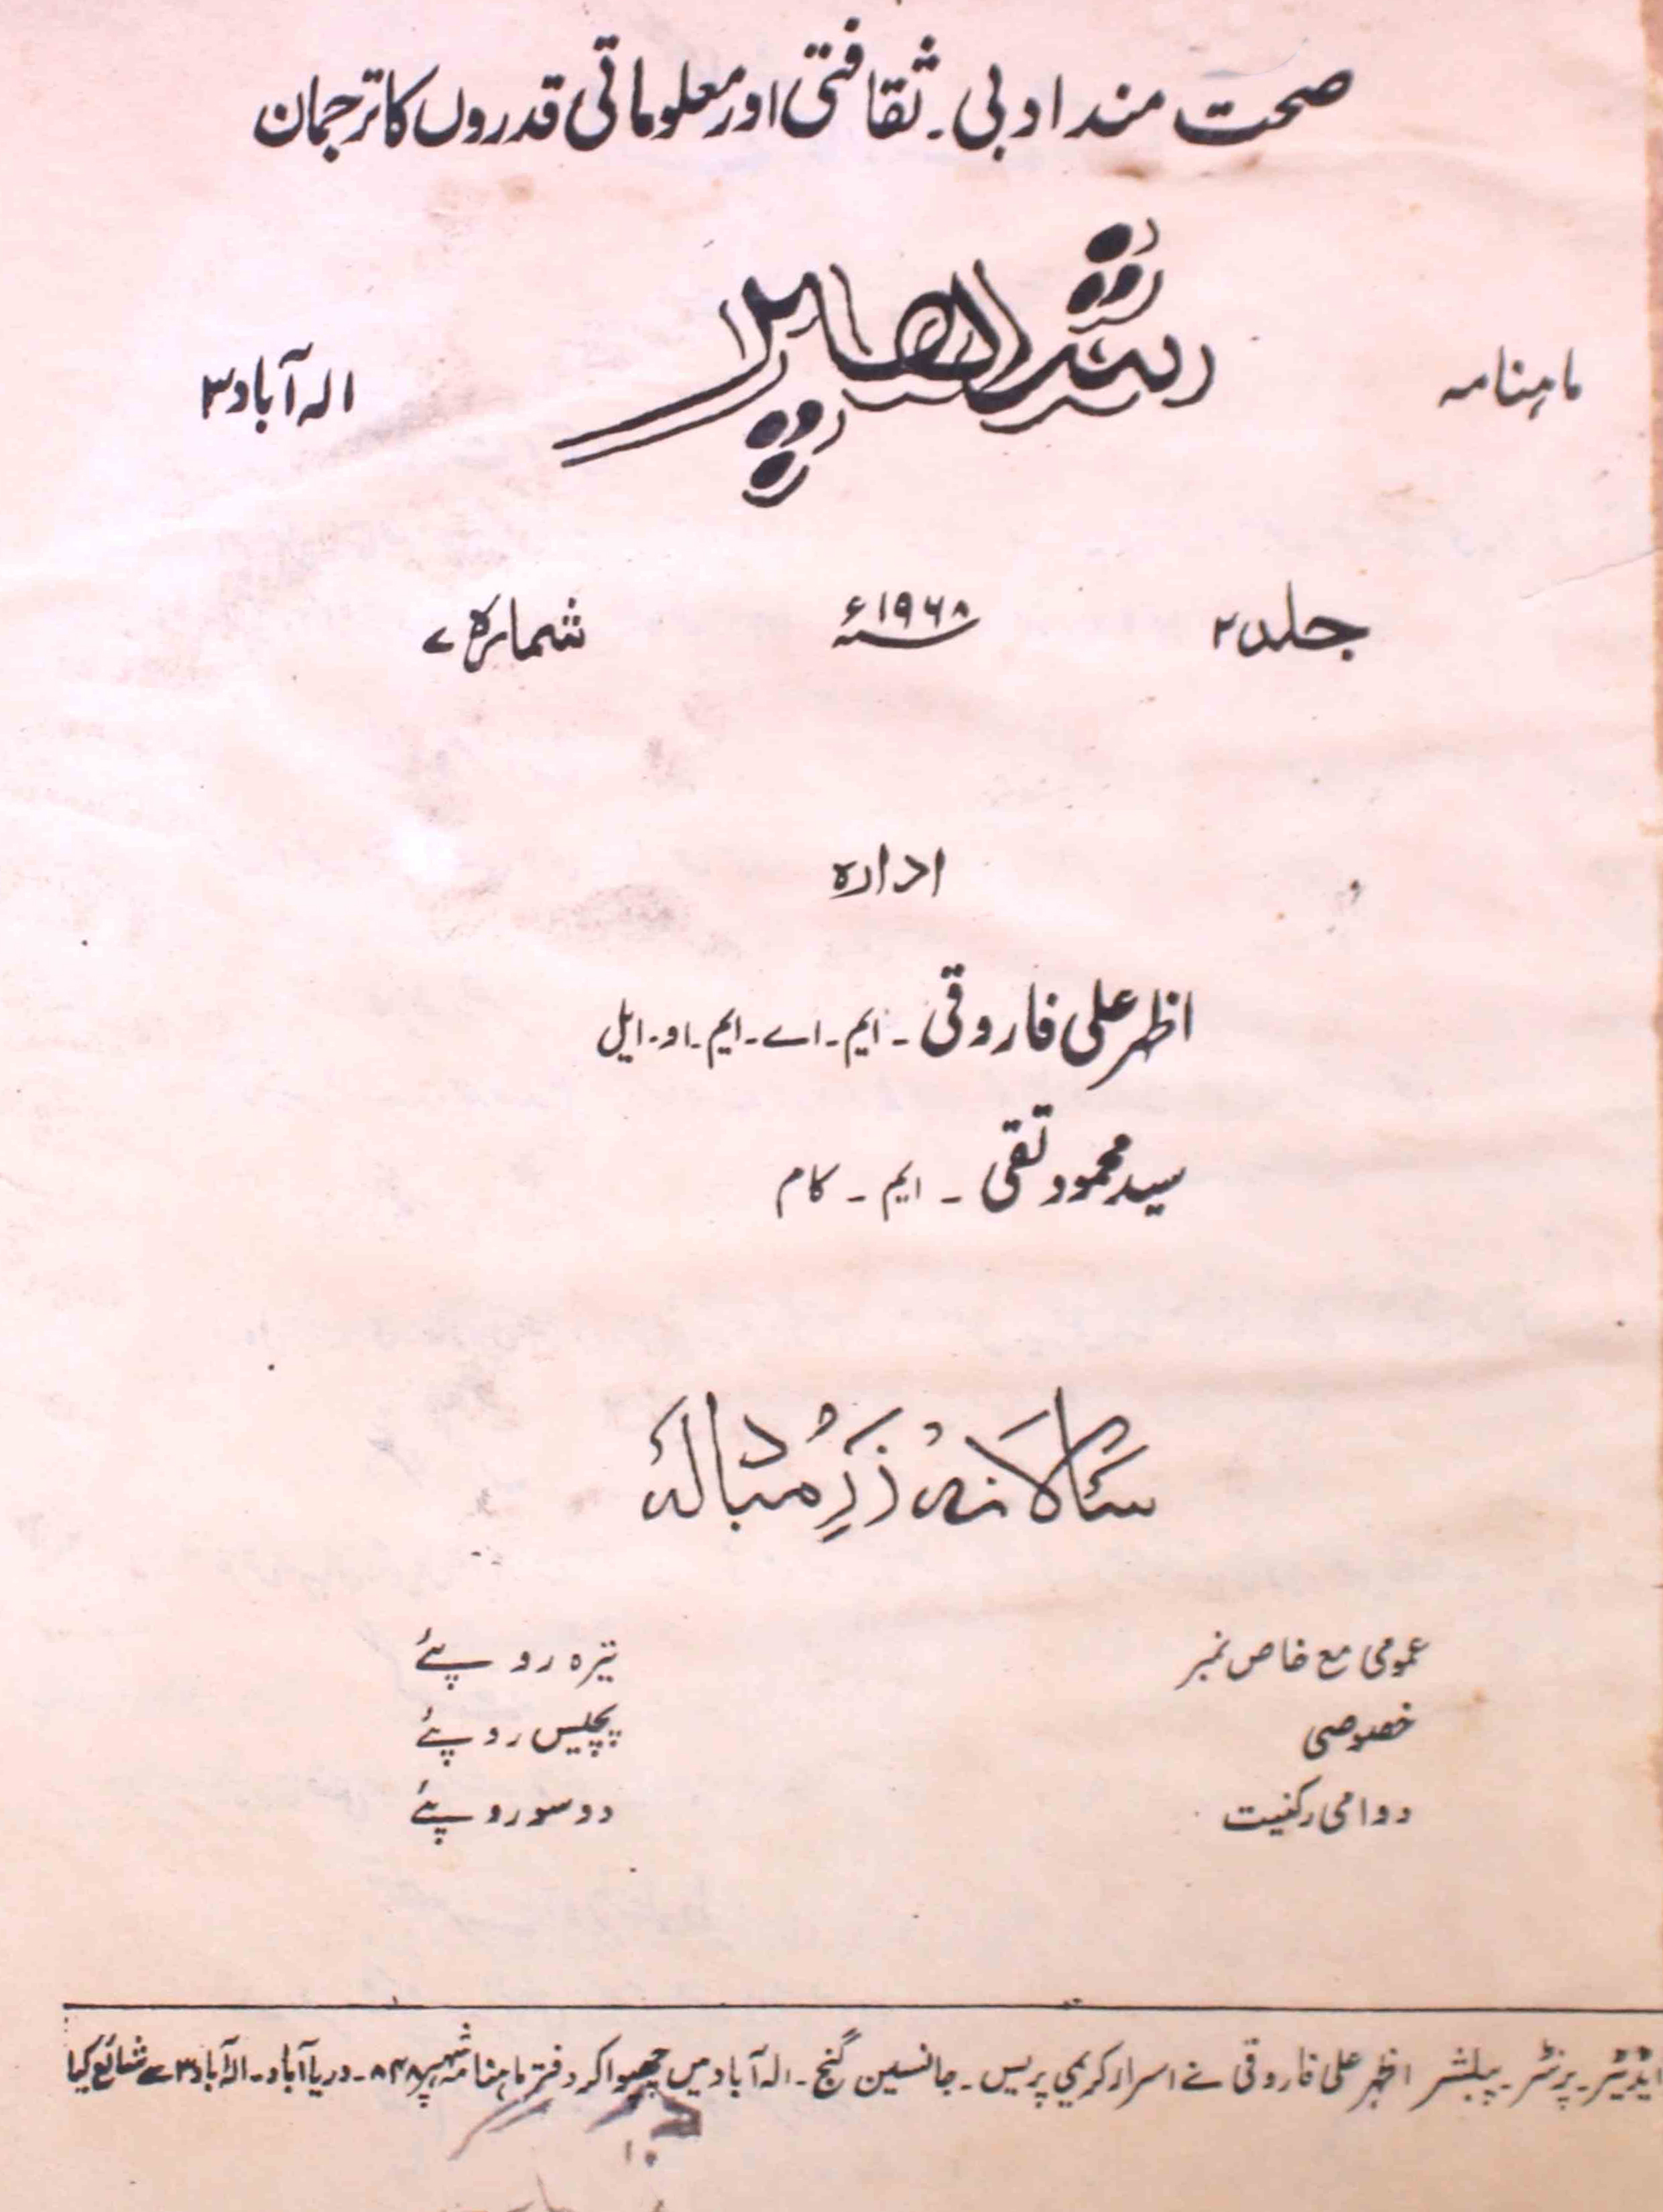 صحت مند ادبی ۔ ثقافتی اور معلوماتی قدروں کا ترجمان
ماہنامہ
الہ آباد ۳
جلد ۲ ۱۹۶۸ء شمارہ ۷
ادارہ
اظہر علی فاروقی ۔ ایم ۔ اے ۔ ایم ۔ او ۔ ایل
سید محمود تقی ۔ ایم ۔ کام
سالانہ زر مبادلہ
عمومی مع خاص نمبر تیرہ روپئے
خصوصی پچیس روپئے
دوامی رکنیت دو سو روپئے
ایڈیٹر ۔ پرنٹر ۔ پبلشر اظہر علی فاروقی نے اسرار کریمی پریس ۔ جانسین گنج ۔ الہ آباد میں چھپوا کر دفتر ماہنامہ شہپر ۸۴۸ ۔ دریا آباد ۔ الہ آباد ۳ سے شائع کیا